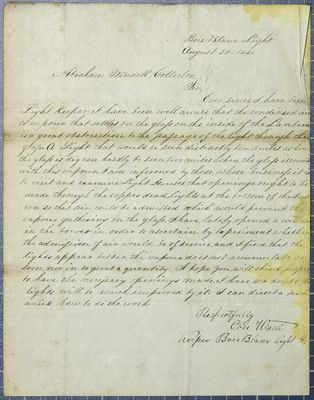 Bois Blanc Light
August 20 1841
Abraham Wendell Collector
Sir
Ever since I have been
Light Keeper I have been well aware that the condensed air
or vapour that settles on the glass on the inside of the Lantern
is a great obstruction to the passage of the light through the
glass. A Light that would be seen distinctly ten miles when
the glass is dry can hardly be seen two miles when the glass is covered
with this vapour. I am informed by those, whose business it is
to visit and examine Light Houses that openings ought to be
made through the copper dead lights at the bottom of the lantern
so that air could be admitted which would prevent the
vapour gathering on the glass. I have lately opened a
in the tower in order to ascertain by experiment whether
the admission of air would be of service, and I find that the
lights appear better, the vapour does not accumulate so
soon, nor in so great a quantity. I hope you will think proper
to have the necessary openings made. I have no doubt the
lights will be much improved by it. I can direct a mech
anick how to do the work
Respectfully
Eber Ward
Keeper Bois Blanc Light H.